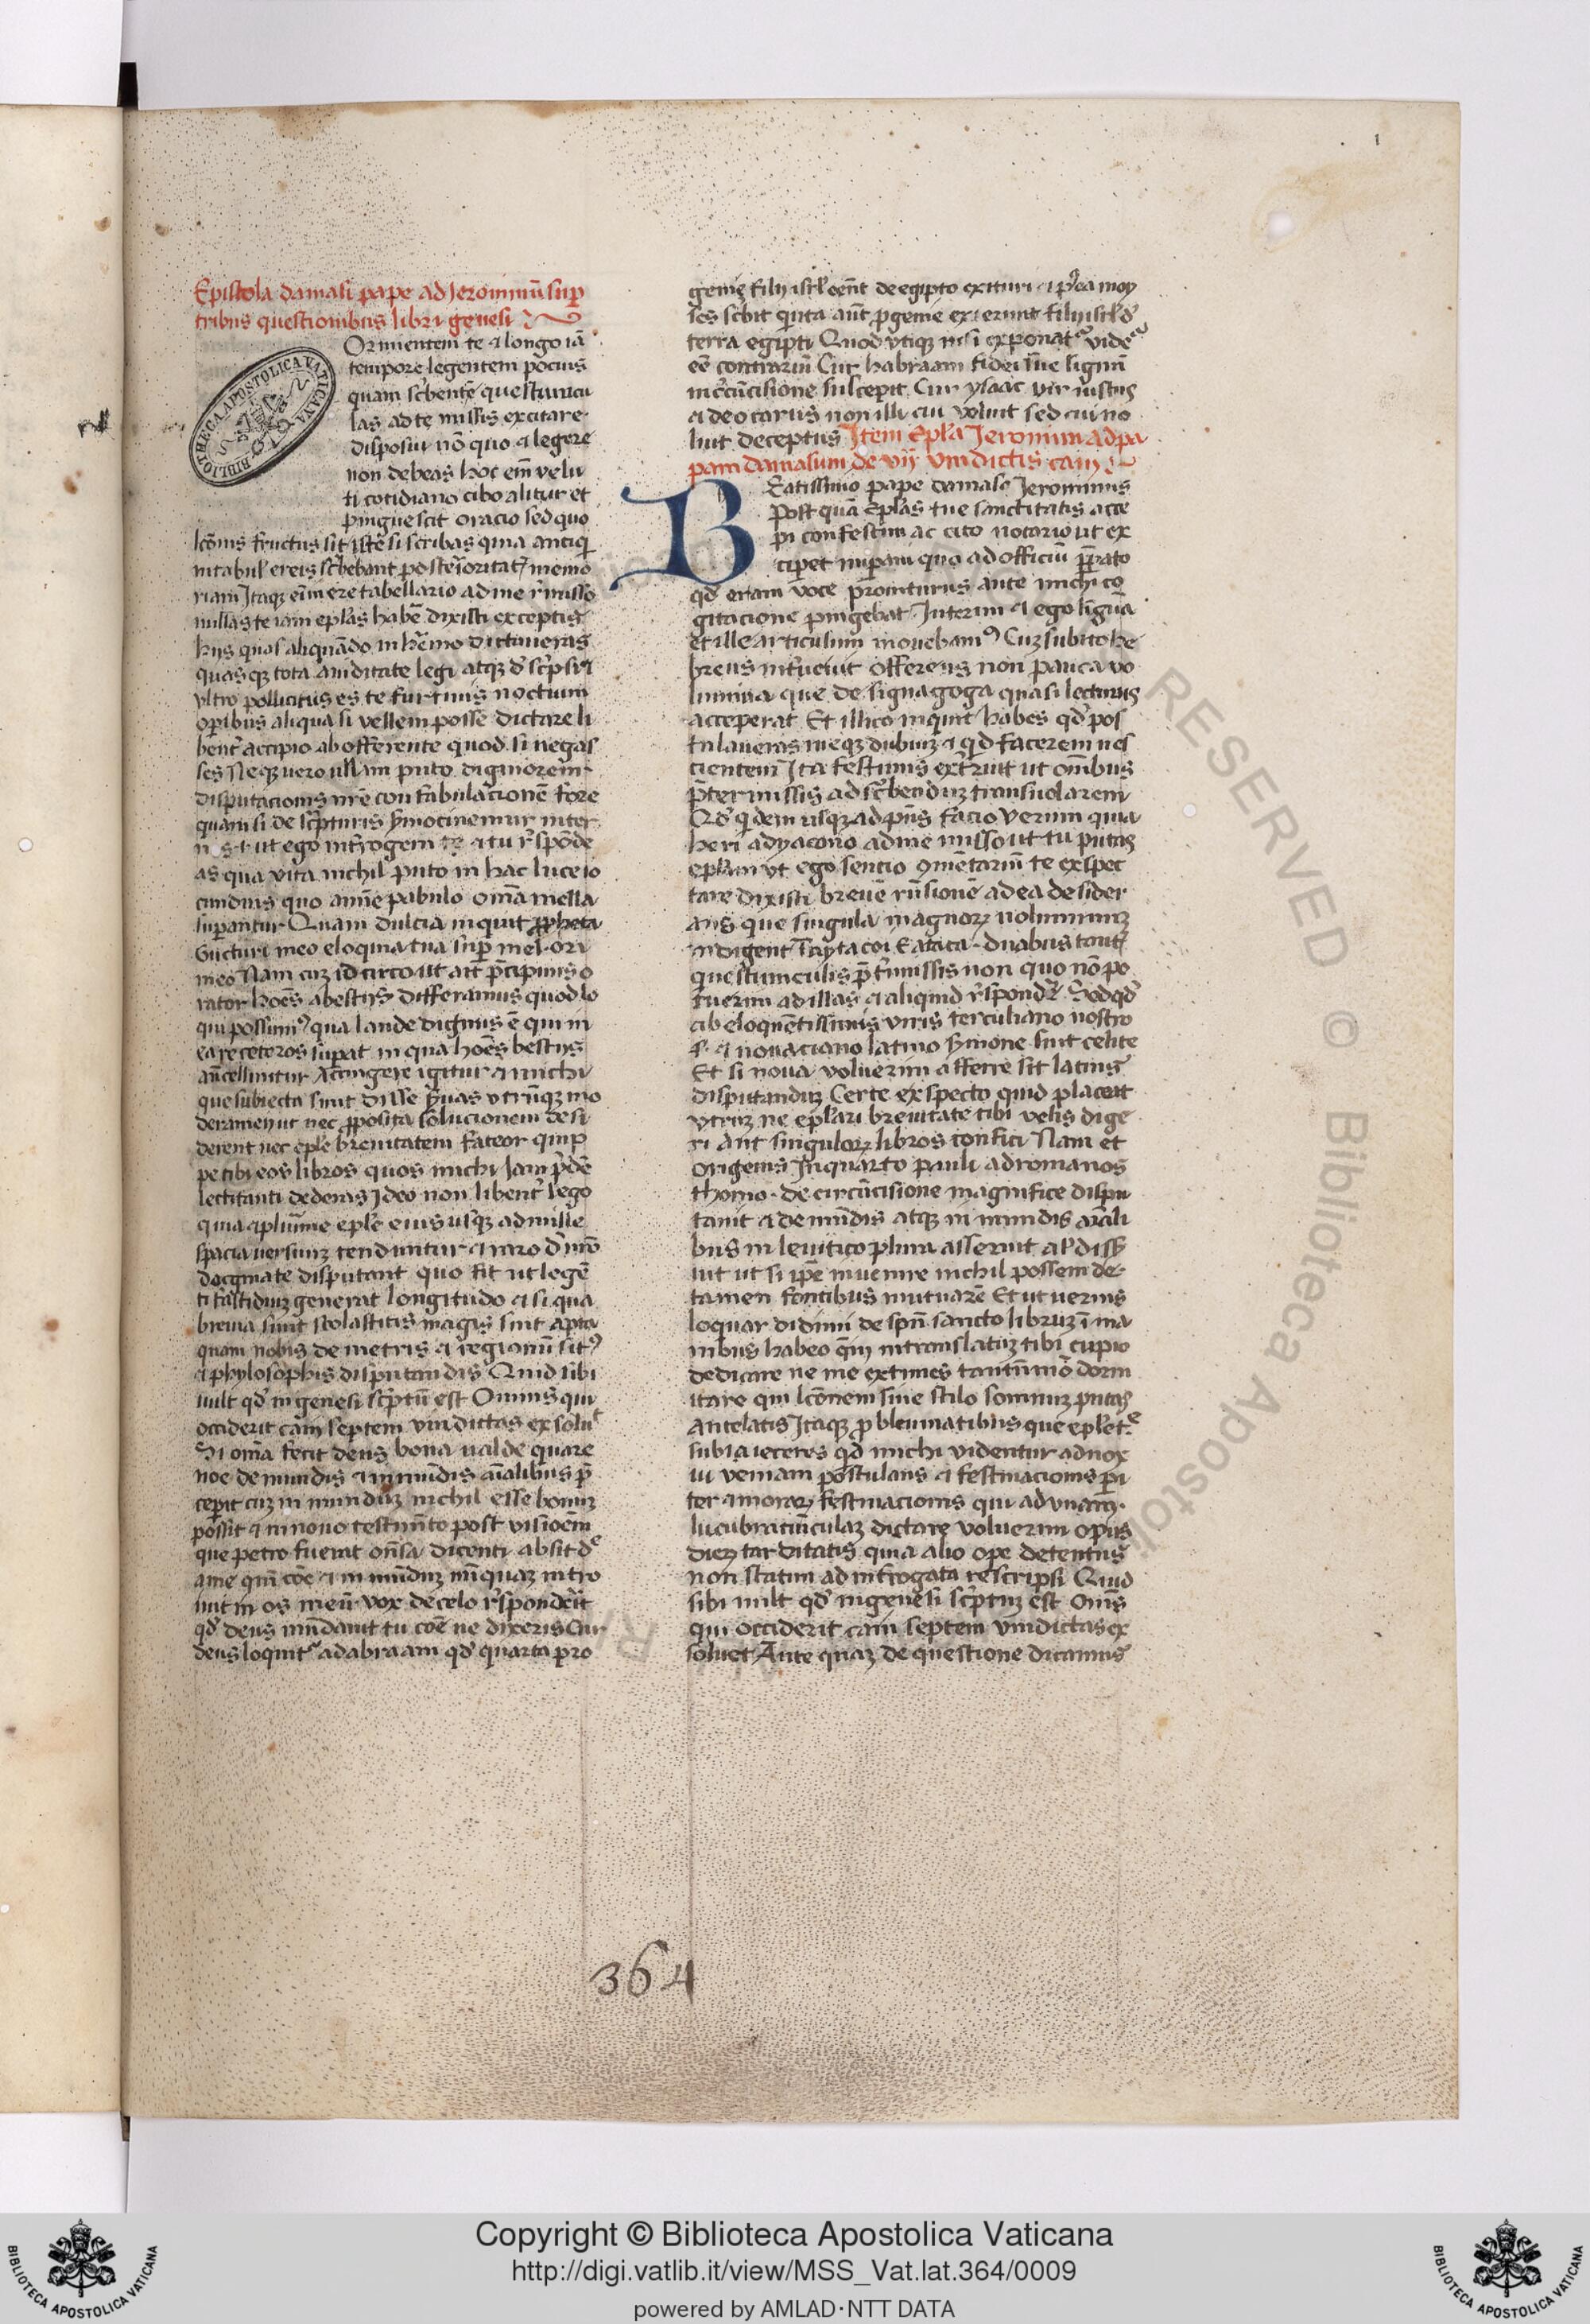 1
Epistola damasi pape ad Jeronimū sup
tribus questionibus libri genesi
Ormientem te ⁊ longo iā
tempore legentem pocius
quam sc̄bentē questiūncu
las ad te missis excitare
disposui nō quo ⁊ legere
non debeas hoc em̄ velu
ti cotidiano cibo alitur et
pinguescit oracio sed quo
lc̄onis fructus sit iste si scribas quia
riam Itaqꝫ ere tabellario ad me
nullas te iam ep̄las habē dixisti exceptis
hijs quas aliquādo in hēmo dictaueras
quasqꝫ tota auiditate legi atqꝫ
vltro pollicitus es te furtiuis noctium
opibus aliqua si vellem posse dictare li
bent̄ accipio ab offerente quod si negas
ses Neqꝫ vero ullam puto digniorem
disputacionis nrē confabulacionē fore
quam si de sc̄pturis s̄mocinemur inter
nos ut ego int̄rogem te ⁊ tu r̄spōde
as qua vita nichil puto in hac luce io
cundius quo anime pabulo om̄a mella
supantur Quam dulcia inquit ꝓpheta
Gucturi meo eloquia tua sup mel ori
meo Nam cuꝫ idcirco ut ait p̄cipuus o
rator hoēs a bestijs differamus quod lo
qui possimꝰ qua laude dignus ē qui in
ea re ceteros supat in qua hoēs bestijs
antecellunt Accingere igitur ⁊ michi
que subiecta sunt disse s̄uas vtrūqꝫ mo
deramen ut nec ꝓposita solucionem desi
derent nec ep̄le breuitatem fateor quip
pe tibi eos libros quos michi iam p̄dē
lectitanti dederas Ideo non libent̄ lego
quia ⁊ plurime ep̄le eius usqꝫ ad mille
spacia uersuuꝫ tenduntur ⁊ raro d̄ nr̄o
docgmate disputant quo fit ut legē
ti fastidiuꝫ generat longitudo ⁊ si qua
breuia sunt scolasticis magis sint apta
quam nobis de metris ⁊ regionū sitꝰ
⁊ phylosophis disputandis Quid sibi
uult qd̄ in genesi sc̄ptū est Omnis qui
occiderit cayn septem vindictas exsoluᵗ
Si om̄a fecit deus bona ualde quare
noe de mundis ⁊ inmūdis aīalibus p̄
cepit cuꝫ inmunduꝫ nichil esse bonuꝫ
possit ⁊ in nouo testm̄to post visioēm
que petro fuerat on̄sa dicenti absit dᵉ
ame qm̄ cōe ⁊ inmūduꝫ nūquaꝫ intro
iuit in os meū vox de celo r̄sponderit
qd̄ deus mūdauit tu cōe ne dixeris Cur
deus loquit̄ ad abraam qd̄ quarta pro
genie filij isrl̄ eēnt de egipto exituri ⁊ p̄ea moy
ses sc̄bit quīta aūt ꝓgenie exierunt filij isrl̄ d̄
terra egipti Quod vtiqꝫ nisi exponatᵉ vide
eē contrariū Cur habraam fidei sue signū
in circūcisione suscepit Cur ysaac vir iustus
⁊ deo carus non illi cui voluit sed cui no
luit deceptus Item Ep̄la Jeronimi ad pa
pam damasum de vij vindictis caiȳ
Beatissimo pape damaso Jeronimus
Postquā Ep̄las tue sanctitatis acce
pi confestim ac cito notario ut ex
ciperet imperaui quo ad officiū p̄rato
qd̄ eram voce promturus ante michi co
gitacione pingebat Interim ⁊ ego linguā
et ille articulum mouebamꝰ Cuꝫ subito he
breus int̄ueuit offerens non pauca vo
lumina que de signagoga quasi lecturus
acceperat Et illico inquit habes qd̄ pos
tulaueras meqꝫ dubiuꝫ ⁊ qd̄ facerem nes
cientem Ita festinus ext̄ruit ut om̄ibus
p̄termissis ad sc̄benduꝫ transuolarem
Qd̄ quidem usqꝫ ad p̄ns facio Verum quia
heri ad dyacono ad me misso ut tu putas
ep̄lam vt ego sencio cōmētariū te exspec
tare dixisti breuē r̄nsionē ad ea desider
ans que singula magnorꝫ uoluminuꝫ
questiunculis p̄t̄missis non quo nō po
tuerim ad illas ⁊ aliquid r̄spondē Sed qd̄
ab eloquētissimis viris terculiano nostro
s· ⁊ nouaciano latino s̄mone sint edite
Et si noua voluerim afferre sit latius
disputanduꝫ Certe exspecto quid placeat
vtruꝫ ne ep̄lari breuitate tibi velis dige
ri aut singulorꝫ libros confici Nam et
origenis In quarto pauli ad romanos
thomo de circūcisione magnifice dispu
tauit ⁊ de mūdis atqꝫ inmundis aīali
bus in leuitico plura asseruit
uit ut si ip̄e inuenire nichil possem de
tamen fontibus mutuarē Et ut uerius
loquar didimi de sp̄u sancto libruꝫ ī ma
nibus habeo quē in translatuꝫ tibi cupio
dedicare ne me extimes tantūmō dorm
itare qui lc̄onem sine stilo somnuꝫ putas
Antelatis Itaqꝫ ꝓbleumatibus que ep̄le tᵉ
subiaieceres qd̄ michi videntur adnox
ui veniam postulans ⁊ festinacionis pi
ter ⁊ morarꝫ festinacionis qui ad vnam
lucubratiūculaꝫ dictare voluerim opus
dierꝫ tarditatis quia alio ope detentus
non statim ad int̄rogata rescripsi Quid
sibi uult qd̄ in genesi sc̄ptuꝫ est Om̄s
qui occiderit cayn septem vindictas ex
soluet Ante quaꝫ de questione dicamus
364
BIBLIOTHECA APOSTOLICA VATICANA
RESERVED © Biblioteca Apostolic
Copyright © Biblioteca Apostolica Vaticana
http://digi.vatlib.it/view/MSS_Vat.lat.364/0009
powered by AMLAD·NTT DATA
BIBLIOTECA APOSTOLICA VATICANA
BIBLIOTECA APOSTOLICA VATICANA